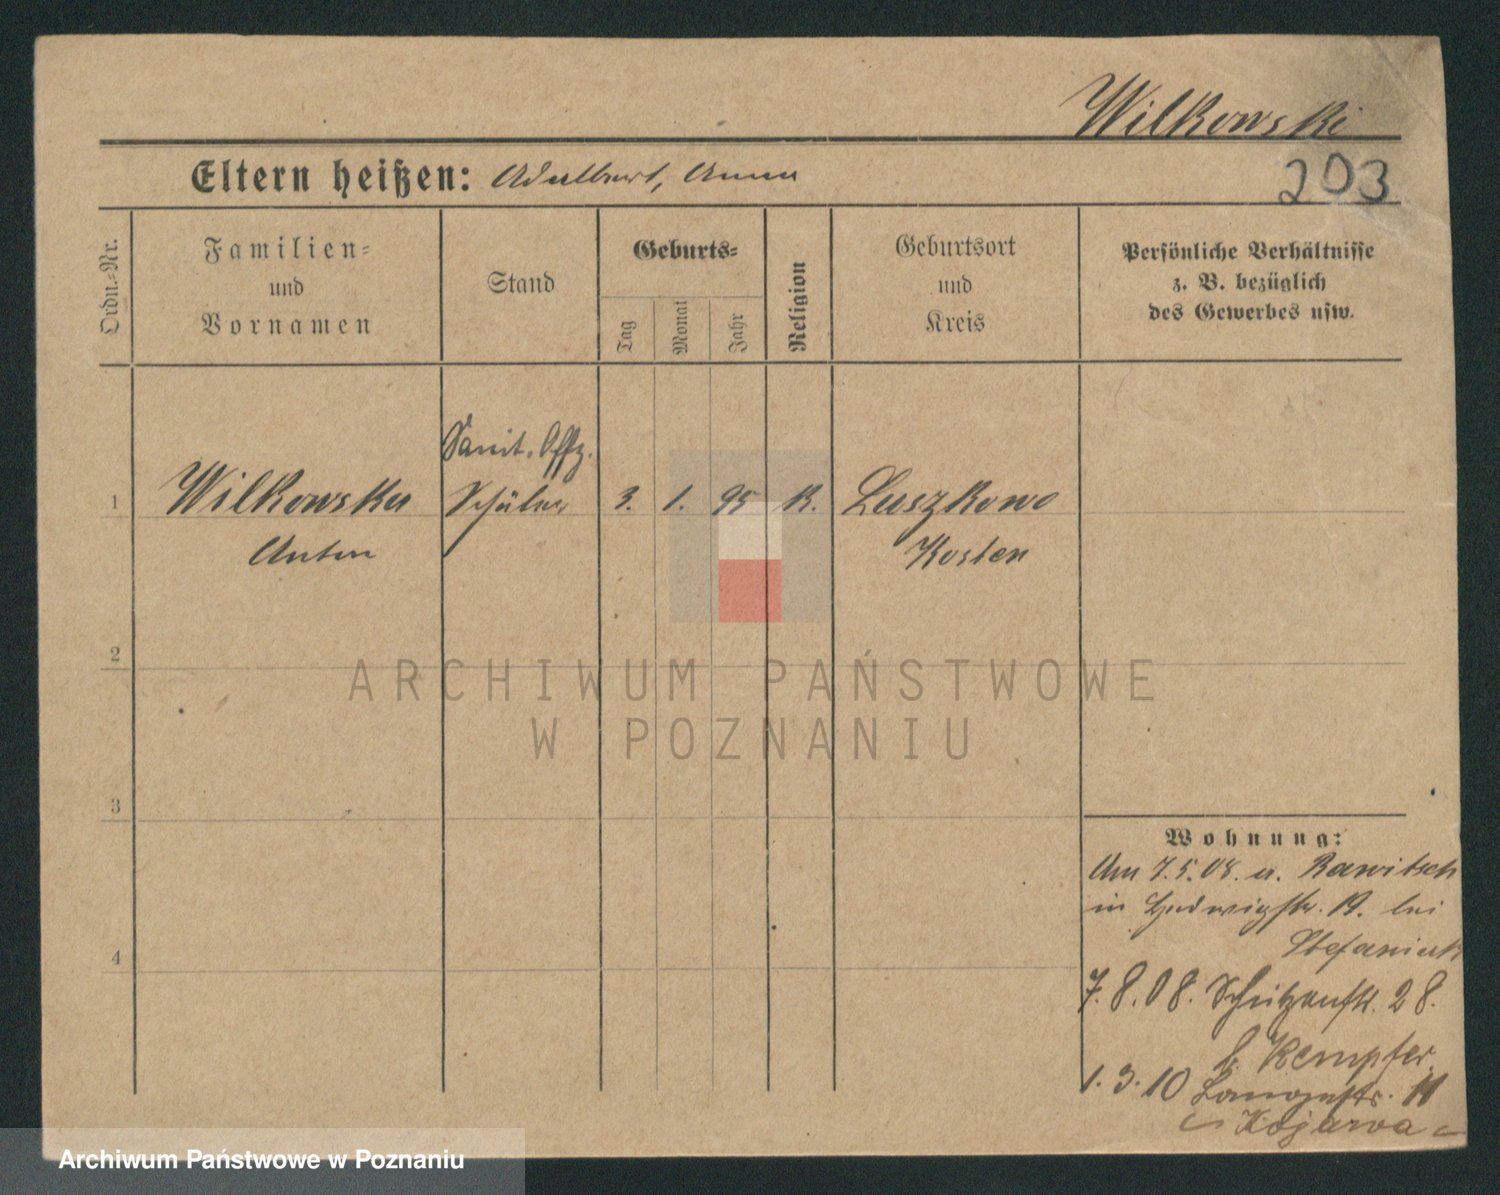 Wilkowski
203
Eltern heißen: Adalbert, Anna
Ordn.-Nr.
Familien-
und
Vornamen
Stand
Geburts-
Tag
Monat
Jahr
Religion
Geburtsort
und
Kreis
Persönliche Verhältnisse
z. B. bezüglich
des Gewerbes usw.
Sanit. Offz.
1 Wilkowski Schüler 3. 1. 95 K. Luszkowo
Anton Kosten
2
3
4
Wohnung:
Am 7.5.08. a. Rawitsch
in Ludwigstr. 19. bei
Stefaniak
7.8.08. Schützenstr. 28.
b. Kempfer
1.3.10 Langestr. 11
Kojawa
ARCHIWUM PAŃSTWOWE
W POZNANIU
Archiwum Państwowe w Poznaniu